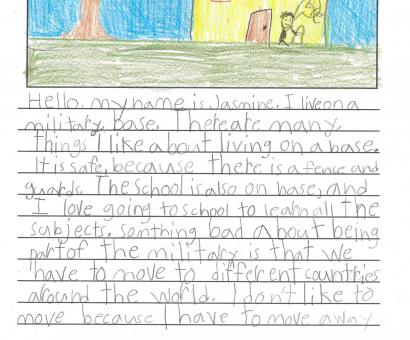 Hello, my name is Jasmine. I live on a
military base. There are many
things I like about living on a base.
It is safe, because there is a fence and
guards. The school is also on base, and
I love going to school to learn all the
subjects. Somthing bad about being
part of the military is that we
have to move to different countries
around the world. I don't like to
move because I have to move away